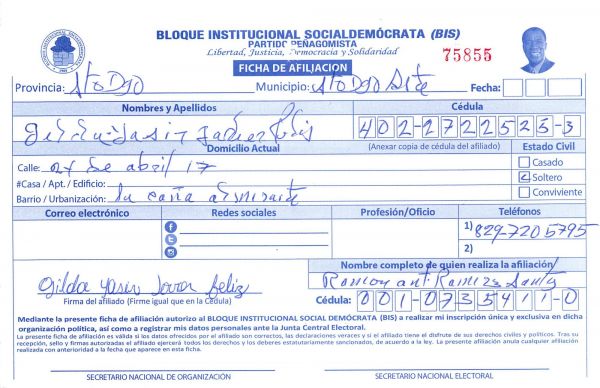 BLOQUE INSTITUCIONAL SOCIALDEMÓCRATA (BIS)
PARTIDO PEÑAGOMISTA
Libertad, Justicia, Democracia y Solidaridad
75855
FICHA DE AFILIACION
Provincia: Sto Dgo Municipio: Sto Dgo Este Fecha:
Nombres y Apellidos Cédula
402-2722525-3
Domicilio Actual (Anexar copia de cédula del afiliado) Estado Civil
Calle: 27 de abril 17 Casado
#Casa / Apt. / Edificio: Soltero
Barrio / Urbanización: la caña Conviviente
Correo electrónico Redes sociales Profesión/Oficio Teléfonos
1) 829-720 5795
2)
Nombre completo de quien realiza la afiliación
Gilda Yasir Feliz Ramon ant. Ramirez Santa
Firma del afiliado (Firme igual que en la Cédula) Cédula: 001-0735411-0
Mediante la presente ficha de afiliación autorizo al BLOQUE INSTITUCIONAL SOCIAL DEMÓCRATA (BIS) a realizar mi inscripción única y exclusiva en dicha
organización política, así como a registrar mis datos personales ante la Junta Central Electoral.
La presente ficha de afiliación es válida si los datos ofrecidos por el afiliado son correctos, las declaraciones veraces y si el afiliado tiene el disfrute de sus derechos civiles y políticos. Tras su
recepción, sello y firmas autorizadas el afiliado ejercerá todos los derechos y los deberes estatutariamente sancionados, de acuerdo a la ley. La presente afiliación anula cualquier afiliación
realizada con anterioridad a la fecha que aparece en esta ficha.
SECRETARIO NACIONAL DE ORGANIZACIÓN SECRETARIO NACIONAL ELECTORAL